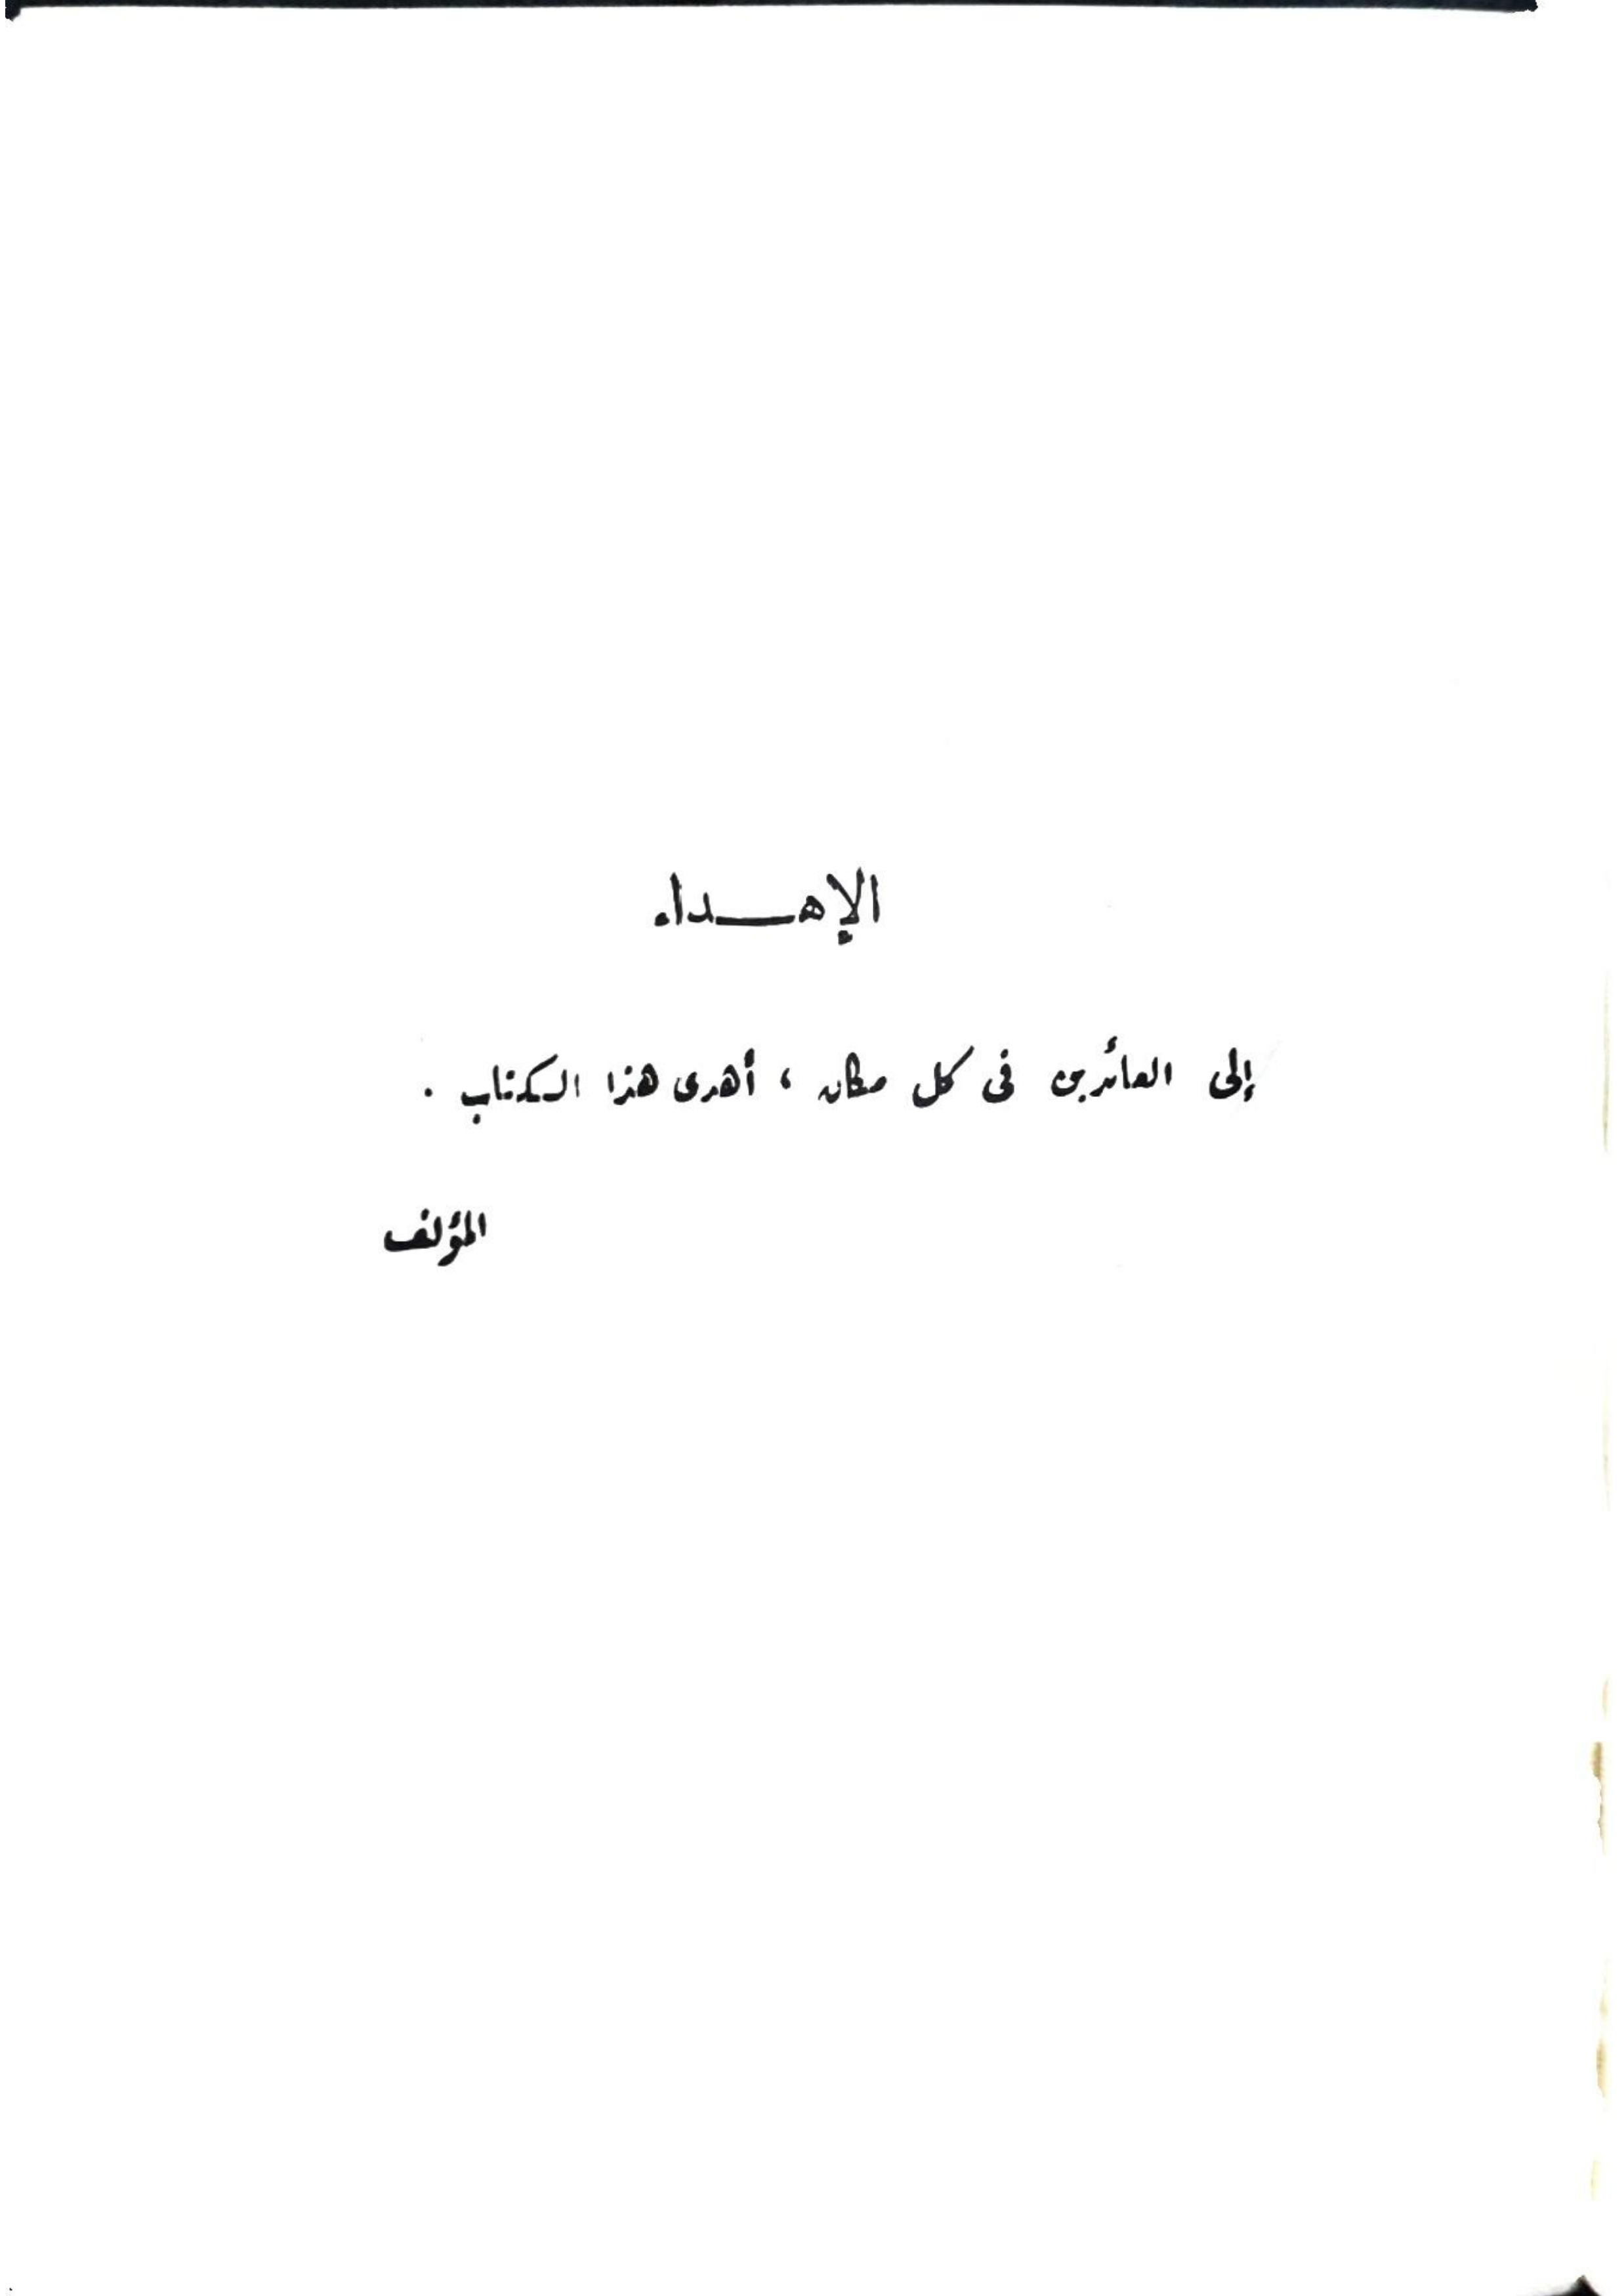 الإهداء
إلى العائدين فى كل مكان ، أهدى هذا الكتاب .
المؤلف